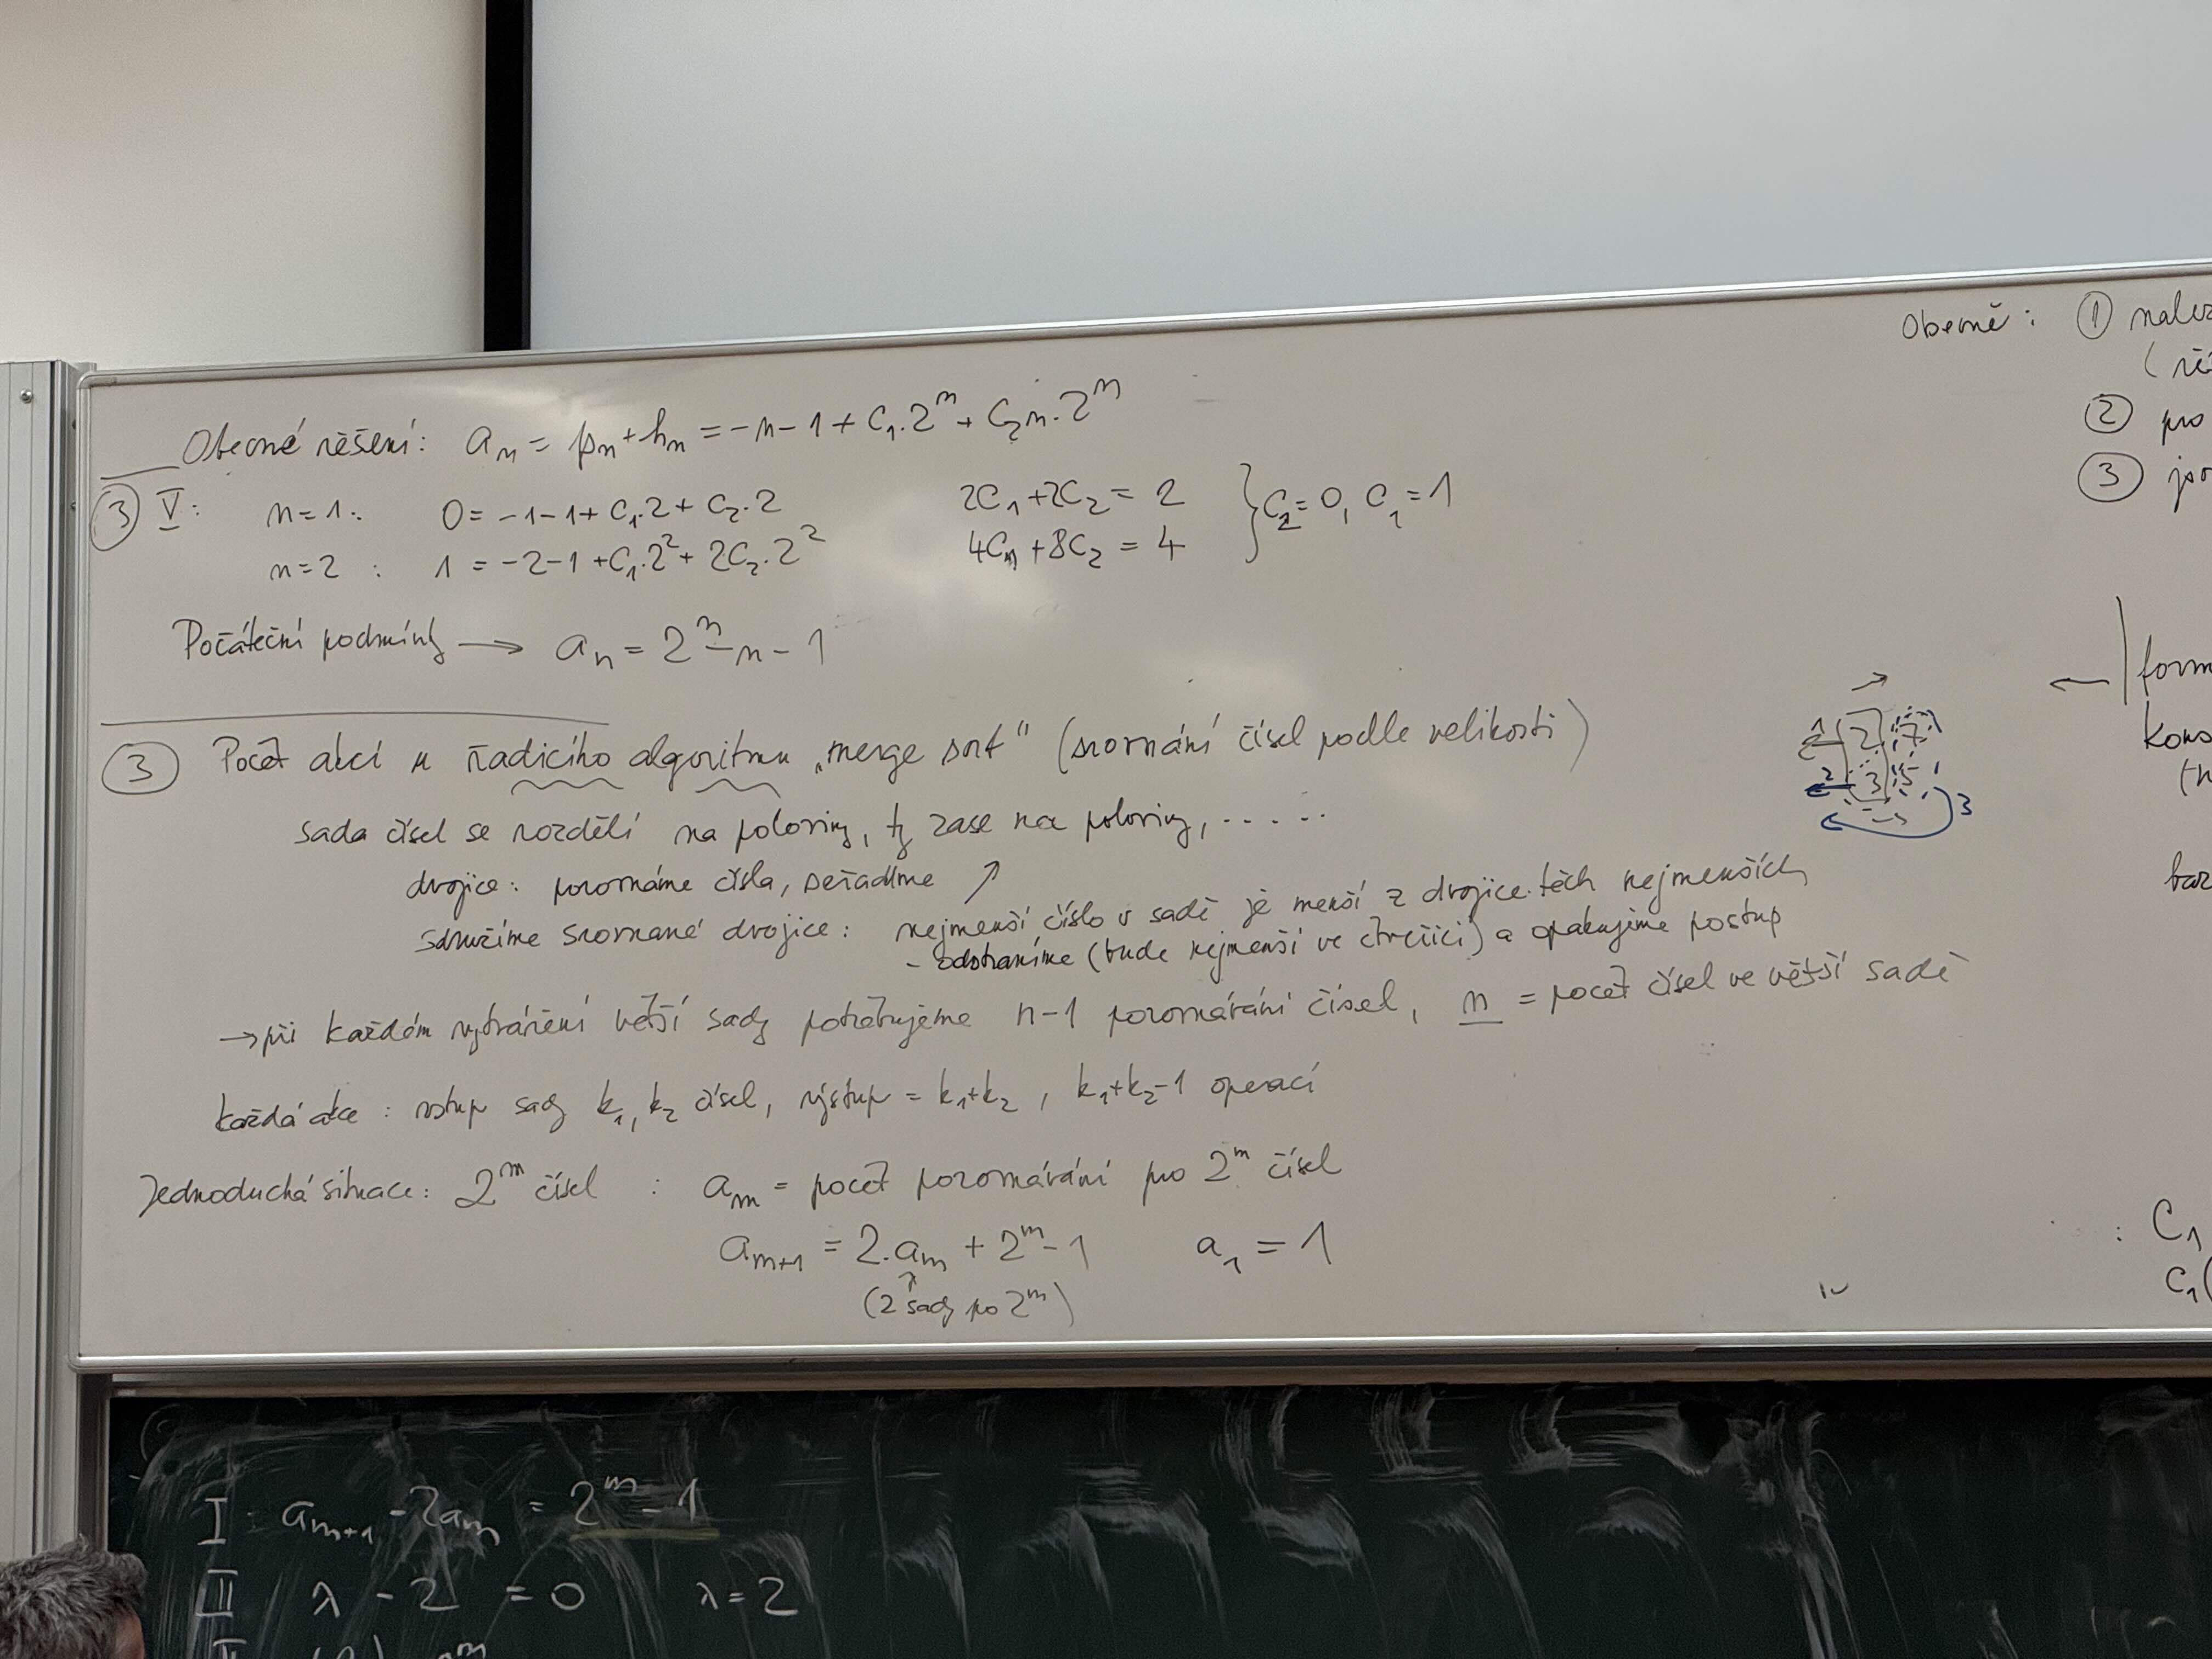 Obecné řešení: aₙ = pₙ + hₙ = -n-1 + C₁·2ⁿ + C₂n·2ⁿ
③ V: n=1: 0 = -1-1+C₁·2+C₂·2 2C₁+2C₂ = 2 } C₂=0, C₁=1
n=2: 1 = -2-1+C₁·2²+2C₂·2² 4C₁+8C₂ = 4
Počáteční podmínky → aₙ = 2ⁿ-n-1
③ Počet akcí u řadicího algoritmu „merge sort" (srovnání čísel podle velikosti)
sada čísel se rozdělí na poloviny, ty zase na poloviny, .....
dvojice: porovnáme čísla, seřadíme ↗
sdružíme srovnané dvojice: nejmenší číslo v sadě je menší z dvojice těch nejmenších
- odstraníme (bude nejmenší ve čtveřici) a opakujeme postup
→ při každém vytváření větší sady potřebujeme n-1 porovnávání čísel, n = počet čísel ve větší sadě
každá akce: vstup sady k₁, k₂ čísel, výstup = k₁+k₂, k₁+k₂-1 operací
Jednoduchá situace: 2ᵐ čísel : aₘ = počet porovnávání pro 2ᵐ čísel
aₘ₊₁ = 2.aₘ + 2ᵐ-1 a₁ = 1
(2 sady po 2ᵐ)
→
1 2 7
2 3 5
3
Obecně: ①
②
③
←
: C₁
C₁(
I: aₘ₊₁ - 2aₘ = 2ᵐ - 1
II λ - 2 = 0 λ = 2